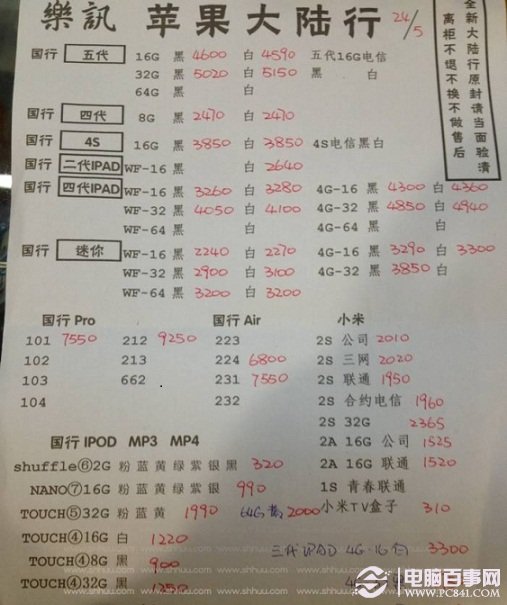 樂訊 苹果大陆行 24/5
全新大陆行原封请当面验清
离柜不退不换不做售后
国行 五代 16G 黑 4600 白 4590 五代16G电信
32G 黑 5020 白 5150 黑 白
64G 黑 白
国行 四代 8G 黑 2470 白 2470
国行 4S 16G 黑 3850 白 3850 4S电信黑白
国行 二代IPAD WF-16 黑 白 2640
国行 四代IPAD WF-16 黑 3260 白 3280 4G-16 黑 4300 白 4360
WF-32 黑 4050 白 4100 4G-32 黑 4850 白 4940
WF-64 黑 白 4G-64 黑 白
国行 迷你 WF-16 黑 2240 白 2270 4G-16 黑 3290 白 3300
WF-32 黑 2900 白 3100 4G-32 黑 3850 白
WF-64 黑 3200 白 3200
国行 Pro 国行 Air 小米
101 7550 212 9250 223 2S 公司 2010
102 213 224 6800 2S 三网 2020
103 662 231 7550 2S 联通 1950
104 232 2S 合约电信 1960
2S 32G 2365
国行 IPOD MP3 MP4 2A 16G 公司 1525
shuffle⑥2G 粉蓝黄绿紫银黑 320 2A 16G 联通 1520
NANO⑦16G 粉蓝黄绿紫银 990 1S 青春联通
TOUCH⑤32G 粉蓝黄 1990 64G 2000 小米TV盒子 310
TOUCH④16G 白 1220
三代IPAD 4G-16白 3300
TOUCH④8G 黑 900
TOUCH④32G 黑 1250
www.shhuu.com
电脑百事网
WWW.PC841.COM